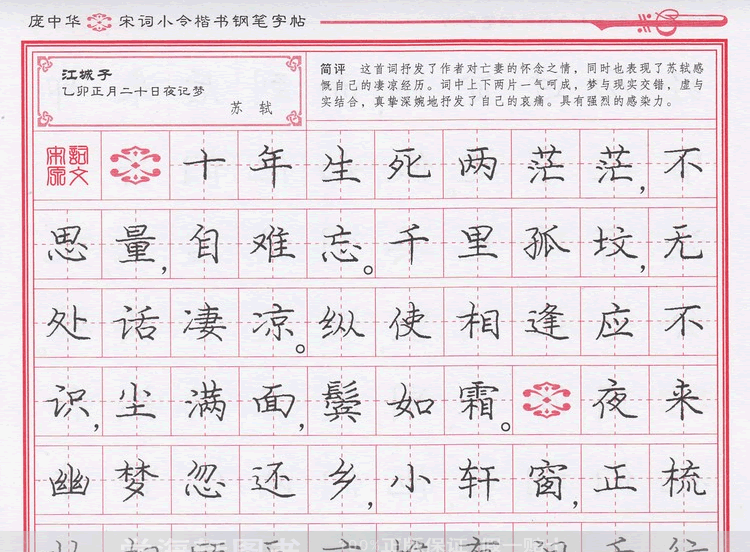 庞中华 宋词小令楷书钢笔字帖
江城子
乙卯正月二十日夜记梦
苏轼
简评 这首词抒发了作者对亡妻的怀念之情，同时也表现了苏轼感
慨自己的凄凉经历。词中上下两片一气呵成，梦与现实交错，虚与
实结合，真挚深婉地抒发了自己的哀痛。具有强烈的感染力。
宋词原文 十年生死两茫茫，不
思量，自难忘。千里孤坟，无
处话凄凉。纵使相逢应不
识，尘满面，鬓如霜。夜来
幽梦忽还乡，小轩窗，正梳